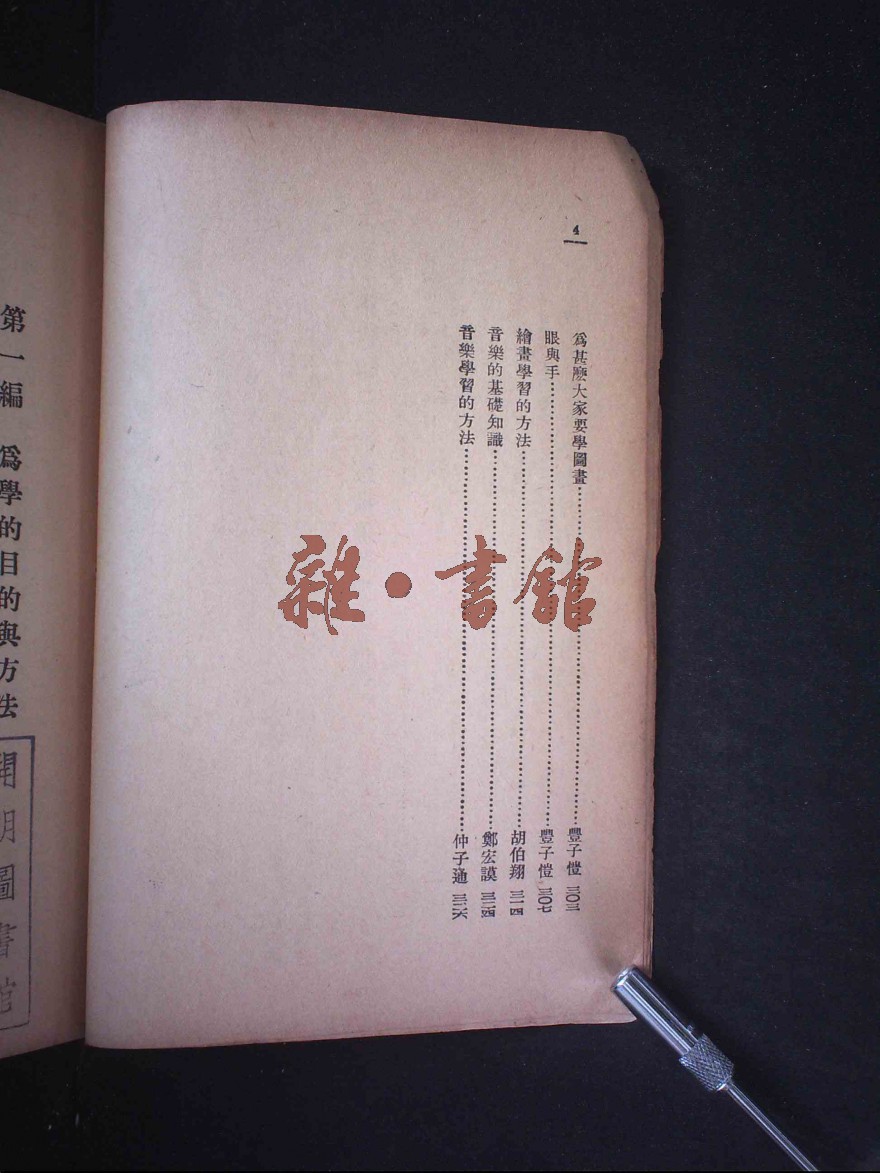 4
爲甚麽大家要學圖畫……豐子愷
眼與手……豐子愷 三〇七
繪畫學習的方法……胡伯翔 三一四
音樂的基礎知識……鄭宏謨
音樂學習的方法……仲子通
第一編 爲學的目的與方法
開明圖書館
雜・書館